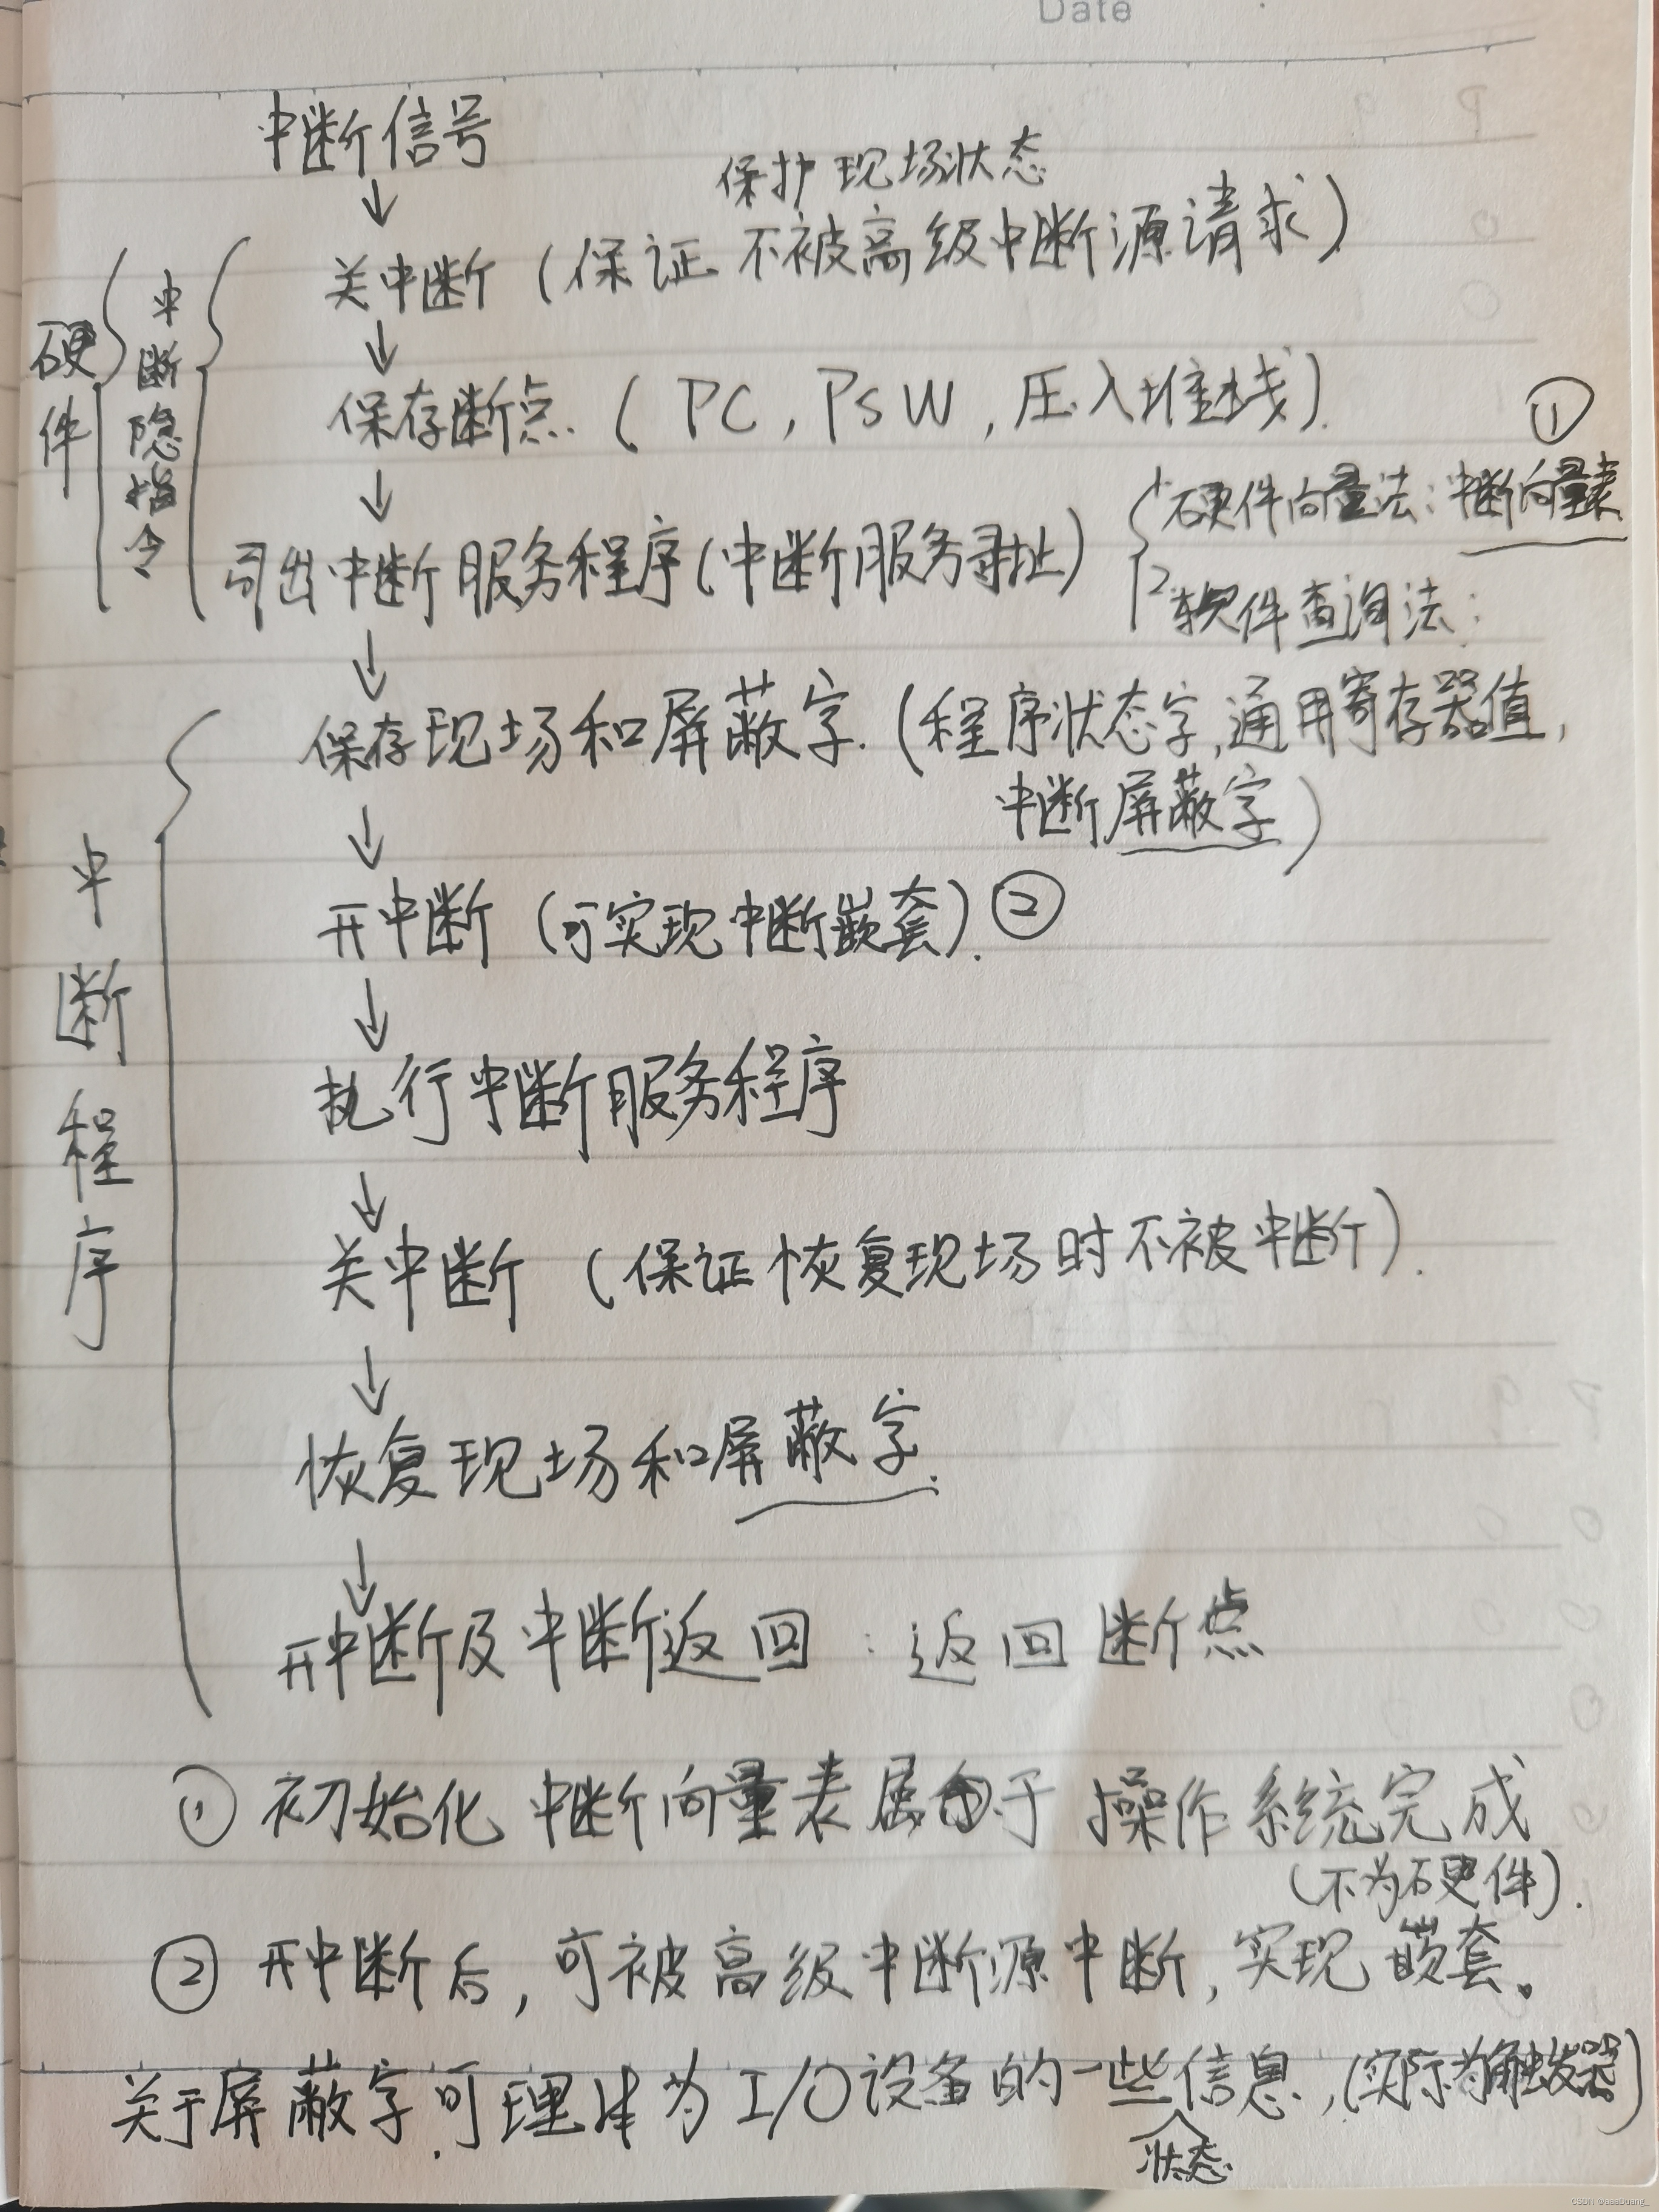 Date
中断信号
↓
保护现场状态
关中断（保证不被高级中断源请求）
↓
保存断点.（PC，PSW，压入堆栈）.
↓
①
引出中断服务程序（中断服务寻址）
1 硬件向量法：中断向量表
2 软件查询法：
硬件
中断隐指令
↓
保存现场和屏蔽字.（程序状态字，通用寄存器值，
中断屏蔽字）
↓
开中断（可实现中断嵌套）. ②
↓
执行中断服务程序
↓
关中断（保证恢复现场时不被中断）.
↓
恢复现场和屏蔽字.
↓
开中断及中断返回：返回断点
中断程序
① 初始化中断向量表属于操作系统完成
（不为硬件）.
② 开中断后，可被高级中断源中断，实现嵌套。
关于屏蔽字.可理解为I/O设备的一些信息，（实际为触发器）
状态
CSDN @aaaDuang_